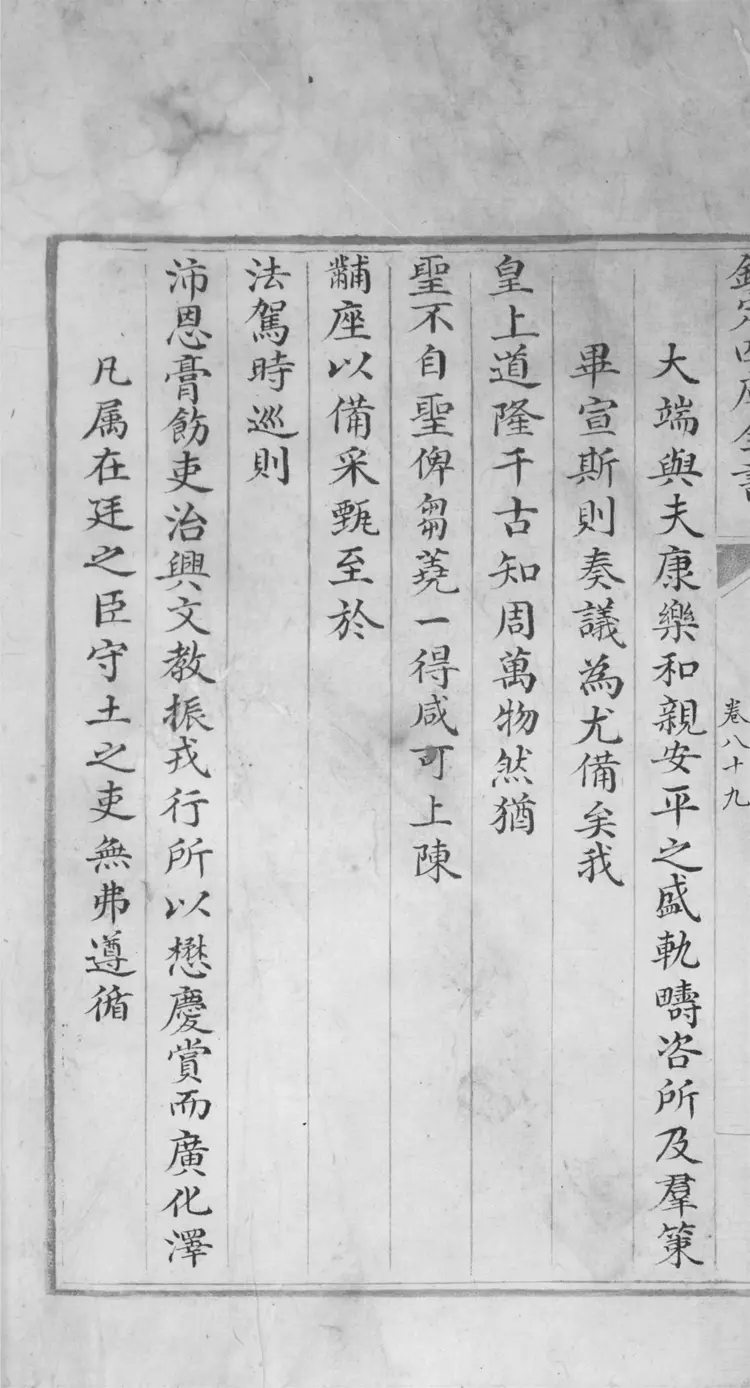 欽定四庫全書
卷八十九
大端與夫康樂和親安平之盛軌疇咨所及羣策
畢宣斯則奏議為尤備矣我
皇上道隆千古知周萬物然猶
聖不自聖俾芻蕘一得咸可上陳
黼座以備采甄至於
法駕時巡則
沛恩膏飭吏治興文教振戎行所以懋慶賞而廣化澤
凡属在廷之臣守土之吏無弗遵循